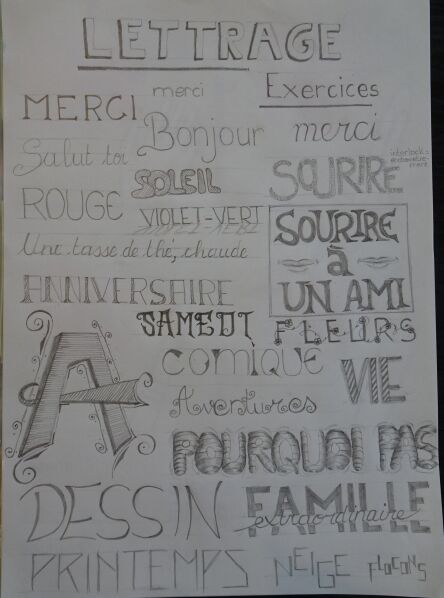 LETTRAGE
merci
Exercices
MERCI
Bonjour
merci
Salut toi
SOLEIL
SOURIRE
ROUGE
VIOLET-VERT
Une tasse de thé, chaude
SOURIRE
à
UN AMI
ANNIVERSAIRE
SAMEDI
FLEURS
A
comique
VIE
Aventures
POURQUOI PAS
DESSIN
FAMILLE
extraordinaire
PRINTEMPS
NEIGE
FLOCONS